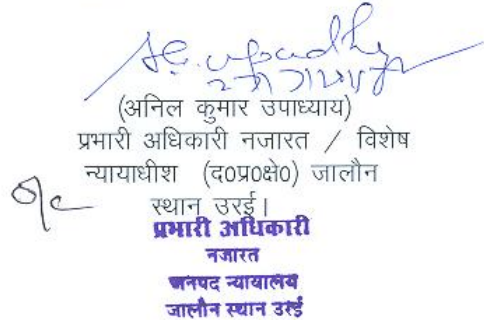 (अनिल कुमार उपाध्याय)
प्रभारी अधिकारी नजारत / विशेष
न्यायाधीश (द०प्र०क्षे०) जालौन
स्थान उरई।
प्रभारी अधिकारी
नजारत
जनपद न्यायालय
जालौन स्थान उरई